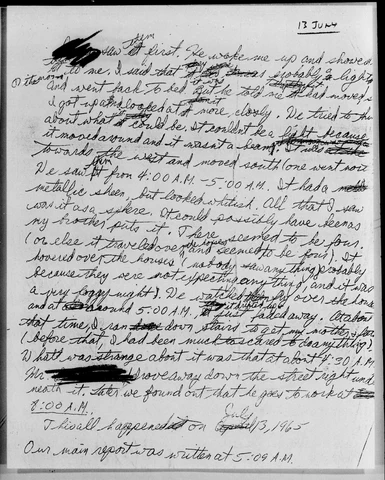 13 JUN4
Jim
saw it first. He woke me up and showed
it to me. I said that it was probably a light
and went back to bed. But he told me it had moved s
I got up and looked at it more closely. We tried to thin
about what it could be. It couldn't be a light because
it moved around and it wasn't a beam.
towards the west and moved south (one went nort
We saw it from 4:00 A.M. - 5:00 A.M. It had a
metallic sheen, but looked whitish. All that I saw
was it as a sphere. It could possibly have been as
my brother puts it. There seemed to be four.
(or else it traveled over and seemed to be four). It
hovered over the houses (nobody saw anything probably
because they were not expecting anything, and it was
a very foggy night). We watched over the hous
and at around 5:00 A.M. it just faded away. At about
that time, I ran down stairs to get my mother
(before that, I had been much to scared to do anything)
What was strange about it was that at about 4:30 A.M.
drove away down the street right und
neath it. Later we found out that he goes to work at
4:00 A.M.
This all happened on July 13, 1965
Our main report was written at 5:09 A.M.